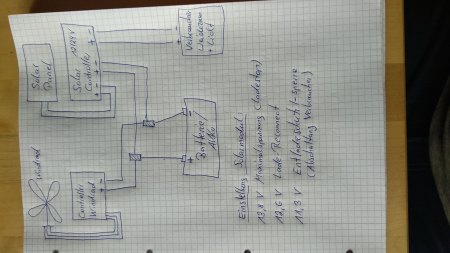 Solar
Panel
Solar
Controller
12/24V
Verbraucher
+ Licht
Windrad
Controller
Windrad
Batterie/
Akku
Einstellung Solarmodul
13,8 V Maximalspannung (Ladestop)
12,6 V Lade Reconnect
11,3 V Entladeschutz-Sperre
(Abschaltung Verbraucher)